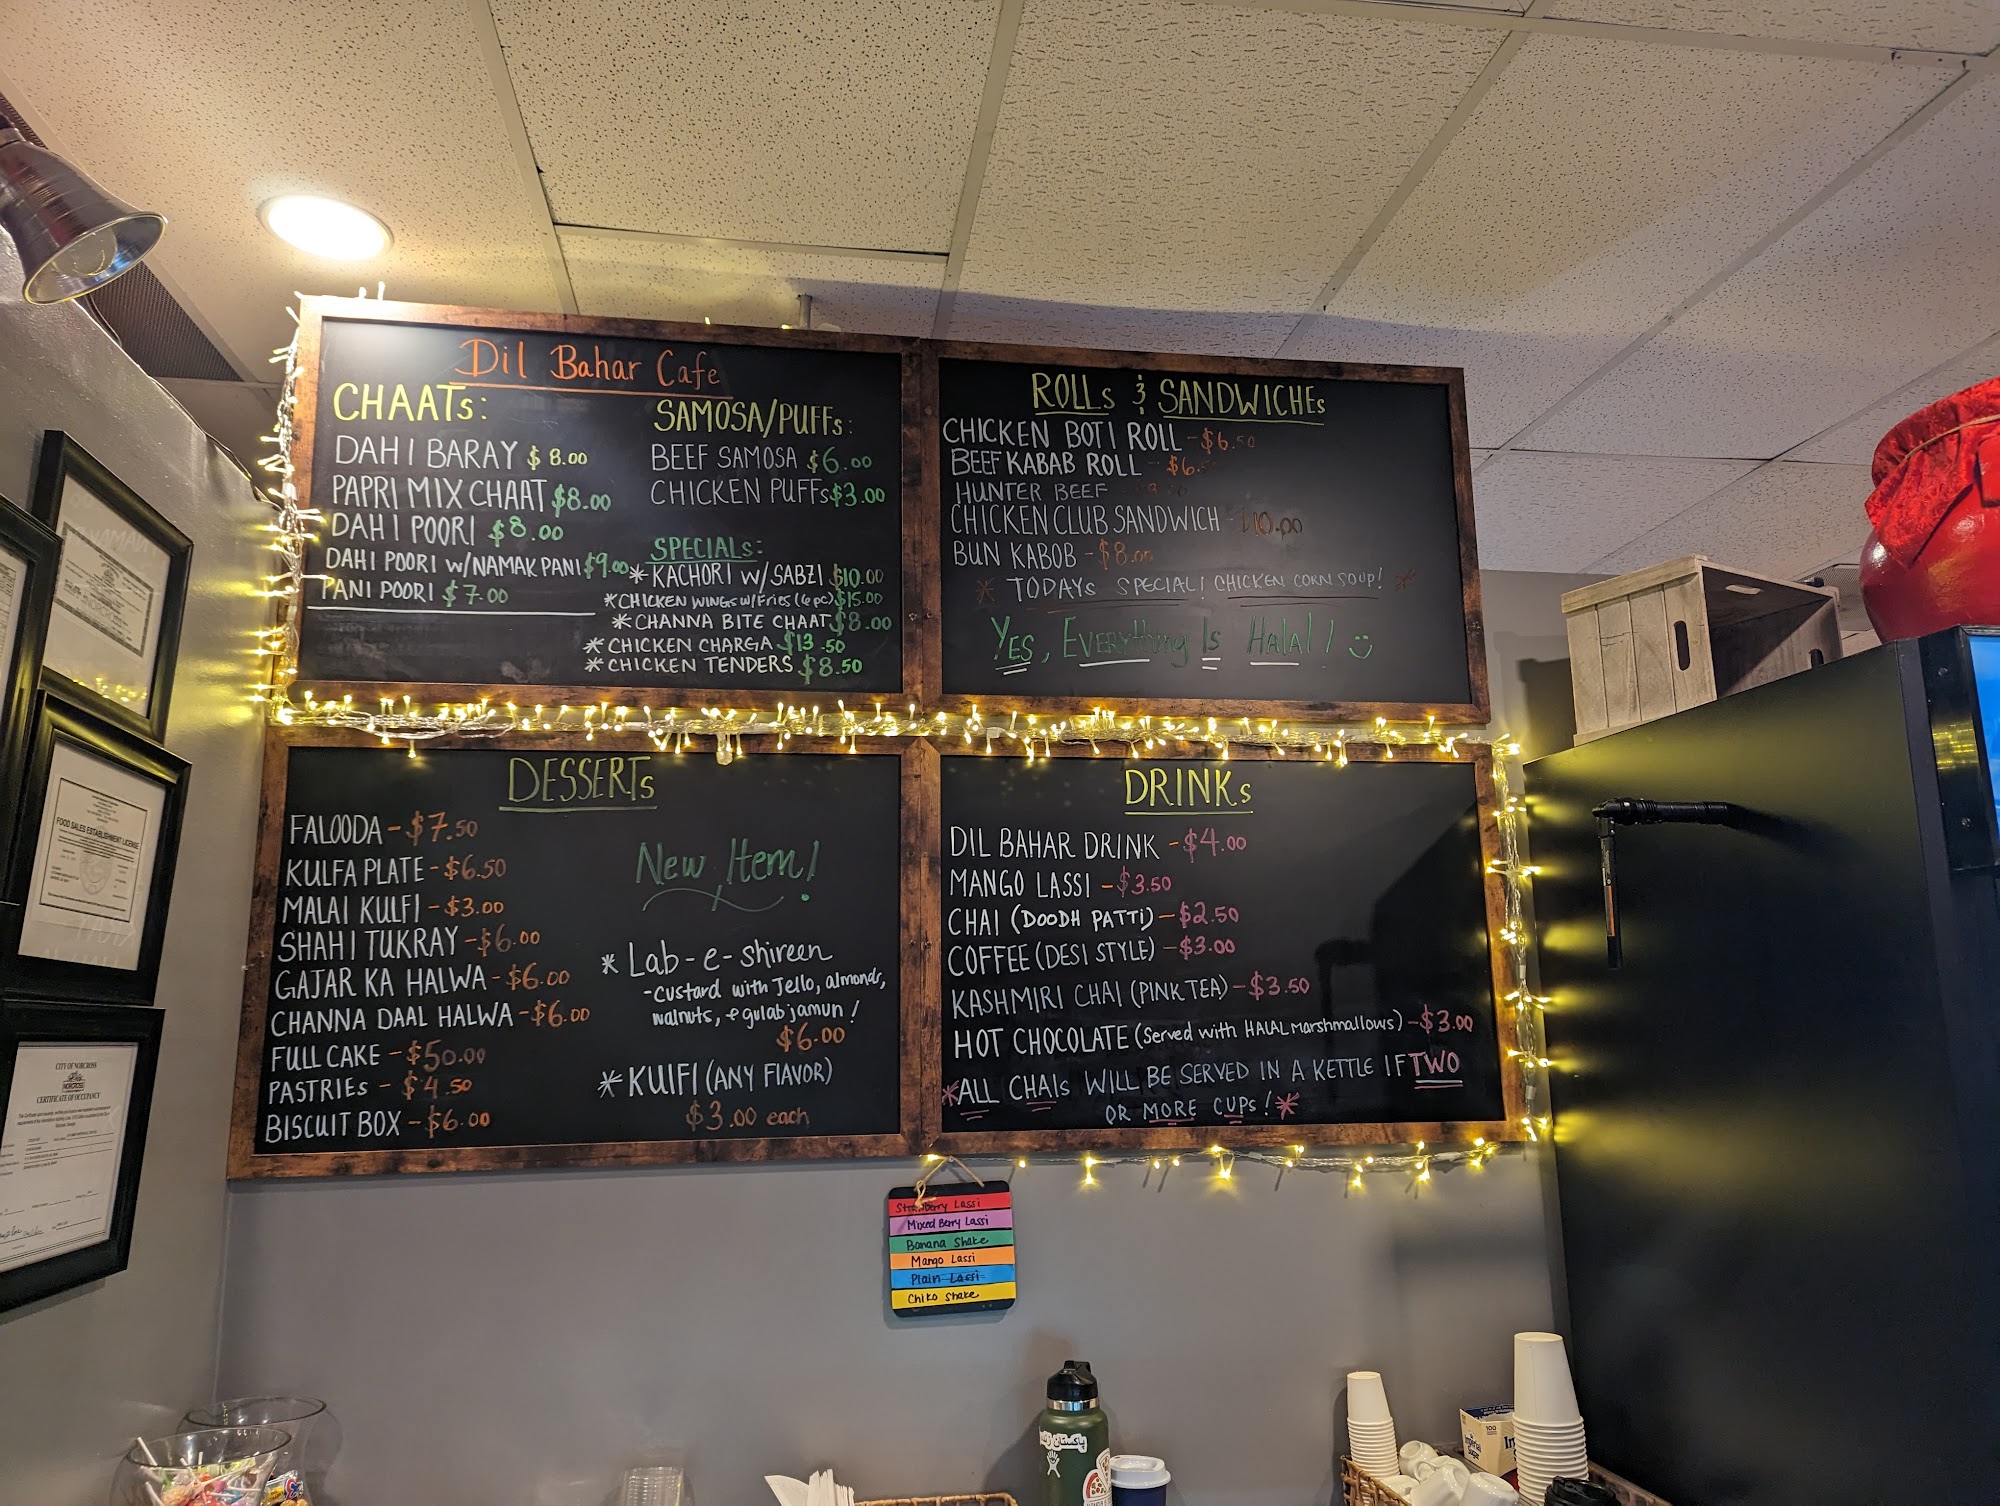 Dil Bahar Cafe
CHAATs:
DAHI BARAY $8.00
PAPRI MIX CHAAT $8.00
DAHI POORI $8.00
DAHI POORI W/NAMAK PANI $9.00
PANI POORI $7.00
SAMOSA/PUFFs:
BEEF SAMOSA $6.00
CHICKEN PUFFs $3.00
SPECIALs:
* KACHORI W/SABZI $10.00
* CHICKEN WINGS w/Fries (6pc) $15.00
* CHANNA BITE CHAAT $8.00
* CHICKEN CHARGA $13.50
* CHICKEN TENDERS $8.50
ROLLs & SANDWICHEs
CHICKEN BOTI ROLL - $6.50
BEEF KABAB ROLL - $6.
HUNTER BEEF
CHICKEN CLUB SANDWICH - $10.00
BUN KABOB - $8.00
* TODAYs SPECIAL! CHICKEN CORN SOUP! *
YES, EVERYthing Is Halal!
DESSERTs
FALOODA - $7.50
KULFA PLATE - $6.50
MALAI KULFI - $3.00
SHAHI TUKRAY - $6.00
GAJAR KA HALWA - $6.00
CHANNA DAAL HALWA - $6.00
FULL CAKE - $50.00
PASTRIEs - $4.50
BISCUIT BOX - $6.00
New Item!
* Lab-e-shireen
- custard with Jello, almonds,
walnuts, + gulab jamun!
$6.00
* KUlFI (ANY FlAVOR)
$3.00 each
DRINKs
DIL BAHAR DRINK - $4.00
MANGO LASSI - $3.50
CHAI (DOODH PATTi) - $2.50
COFFEE (DESI STYLE) - $3.00
KASHMIRI CHAI (PINK TEA) - $3.50
HOT CHOCOLATE (Served with HALAL marshmallows) - $3.00
*ALL CHAIs WILL BE SERVED IN A KETTLE IF TWO
OR MORE CUPs! *
Strawberry Lassi
Mixed Berry Lassi
Banana Shake
Mango Lassi
Plain Lassi
Chiko Shake
FOOD SALES ESTABLISHMENT LICENSE
CITY OF NORCROSS
NORCROSS
CERTIFICATE OF OCCUPANCY
Imperial
100